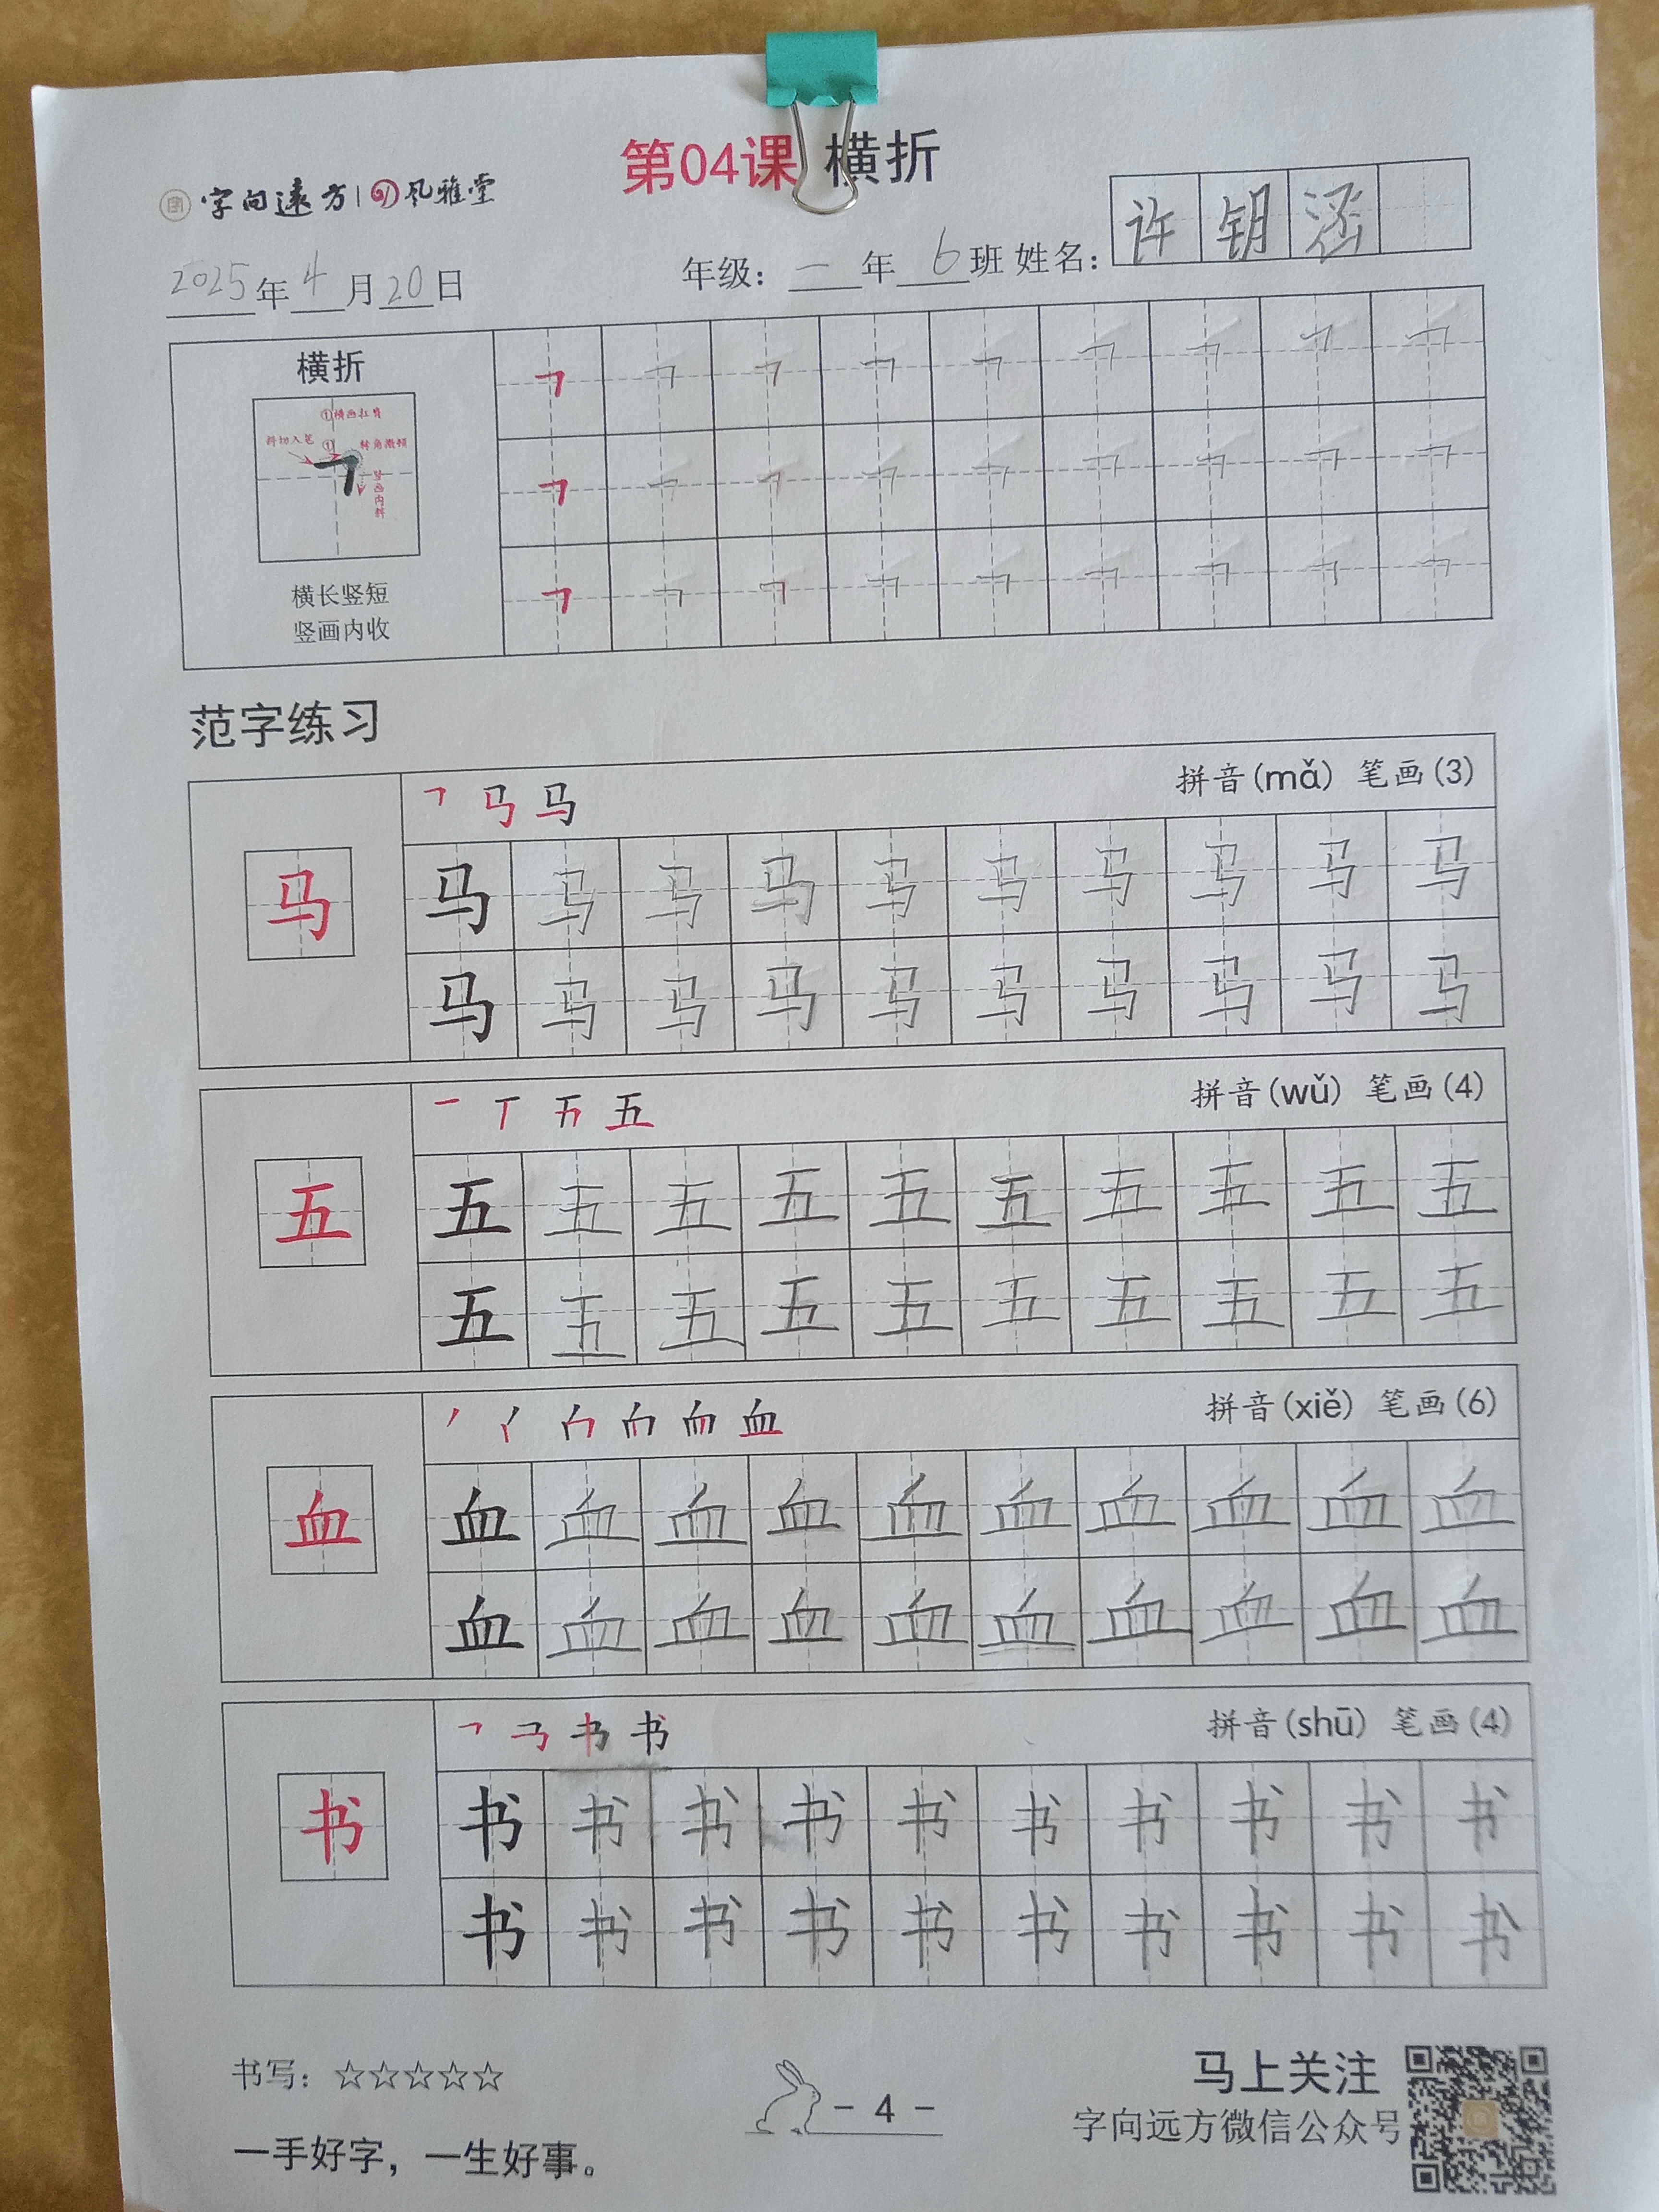 第04课 横折
字向远方 | 风雅堂
许钥涵
2025年4月20日 年级：一年6班 姓名：
横折
①横画扛肩
斜切入笔 ① 转角微顿
竖画内斜
横长竖短
竖画内收
范字练习
拼音(mǎ) 笔画(3)
马 马 马 马 马 马 马 马 马 马 马
马 马 马 马 马 马 马 马 马 马
拼音(wǔ) 笔画(4)
五 五 五 五 五 五 五 五 五 五 五
五 五 五 五 五 五 五 五 五 五
拼音(xiě) 笔画(6)
血 血 血 血 血 血 血 血 血 血 血
血 血 血 血 血 血 血 血 血 血
拼音(shū) 笔画(4)
书 书 书 书 书 书 书 书 书 书 书
书 书 书 书 书 书 书 书 书 书
书写：☆☆☆☆☆
- 4 -
马上关注
字向远方微信公众号
一手好字，一生好事。